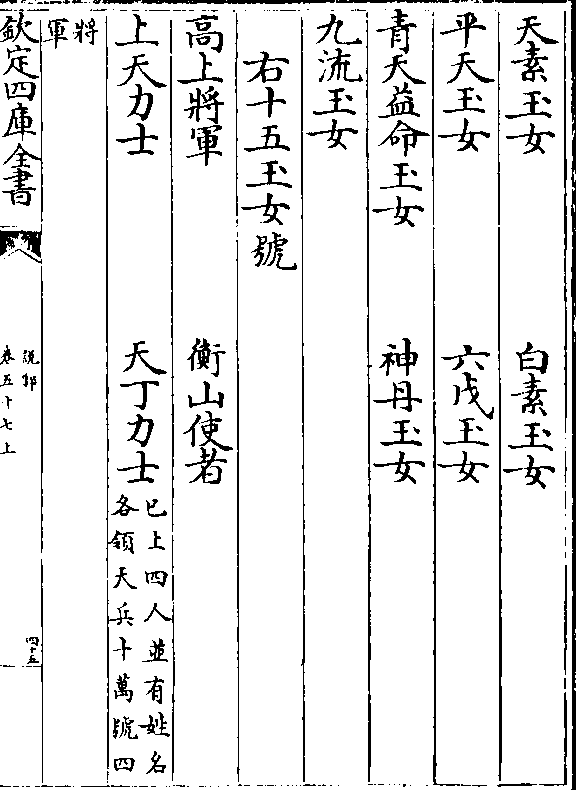 天素玉女　白素玉女
平天玉女　六戊玉女
青天益命玉女　神丹玉女
九流玉女
右十五玉女號
高上將軍　衡山使者
上天力士　天丁力士　已上四人並有姓名
各領天兵十萬號四
將
軍
欽定四庫全書
說郛
卷五十七上
四十五